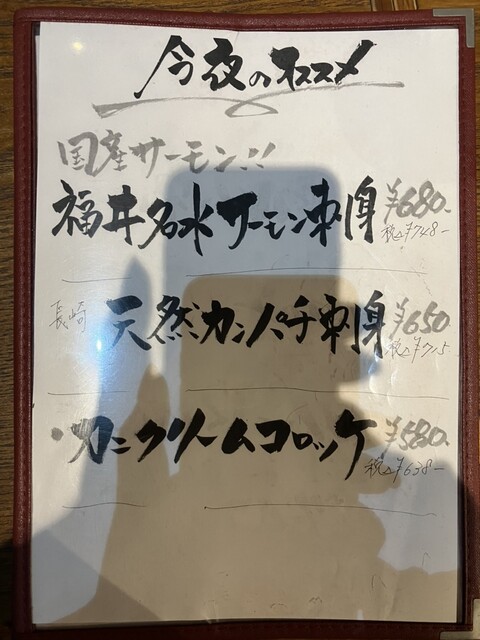 今夜のオススメ
国産サーモン!!
福井名水サーモン刺身 ¥680-
税込¥748-
長崎 天然カンパチ刺身 ¥650
税込¥715
・カニクリームコロッケ ¥580-
税込¥638-